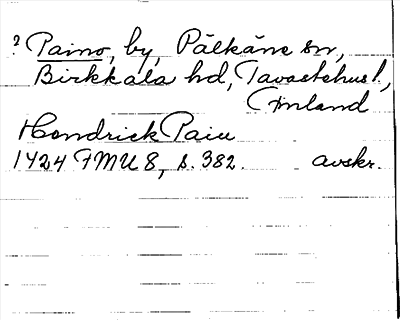 ? Paino, by, Pälkäne sn,
Birkkala hd, Tavastehus l.,
Finland
Hendrick Paiu
1424 FMU 8, s. 382. avskr.